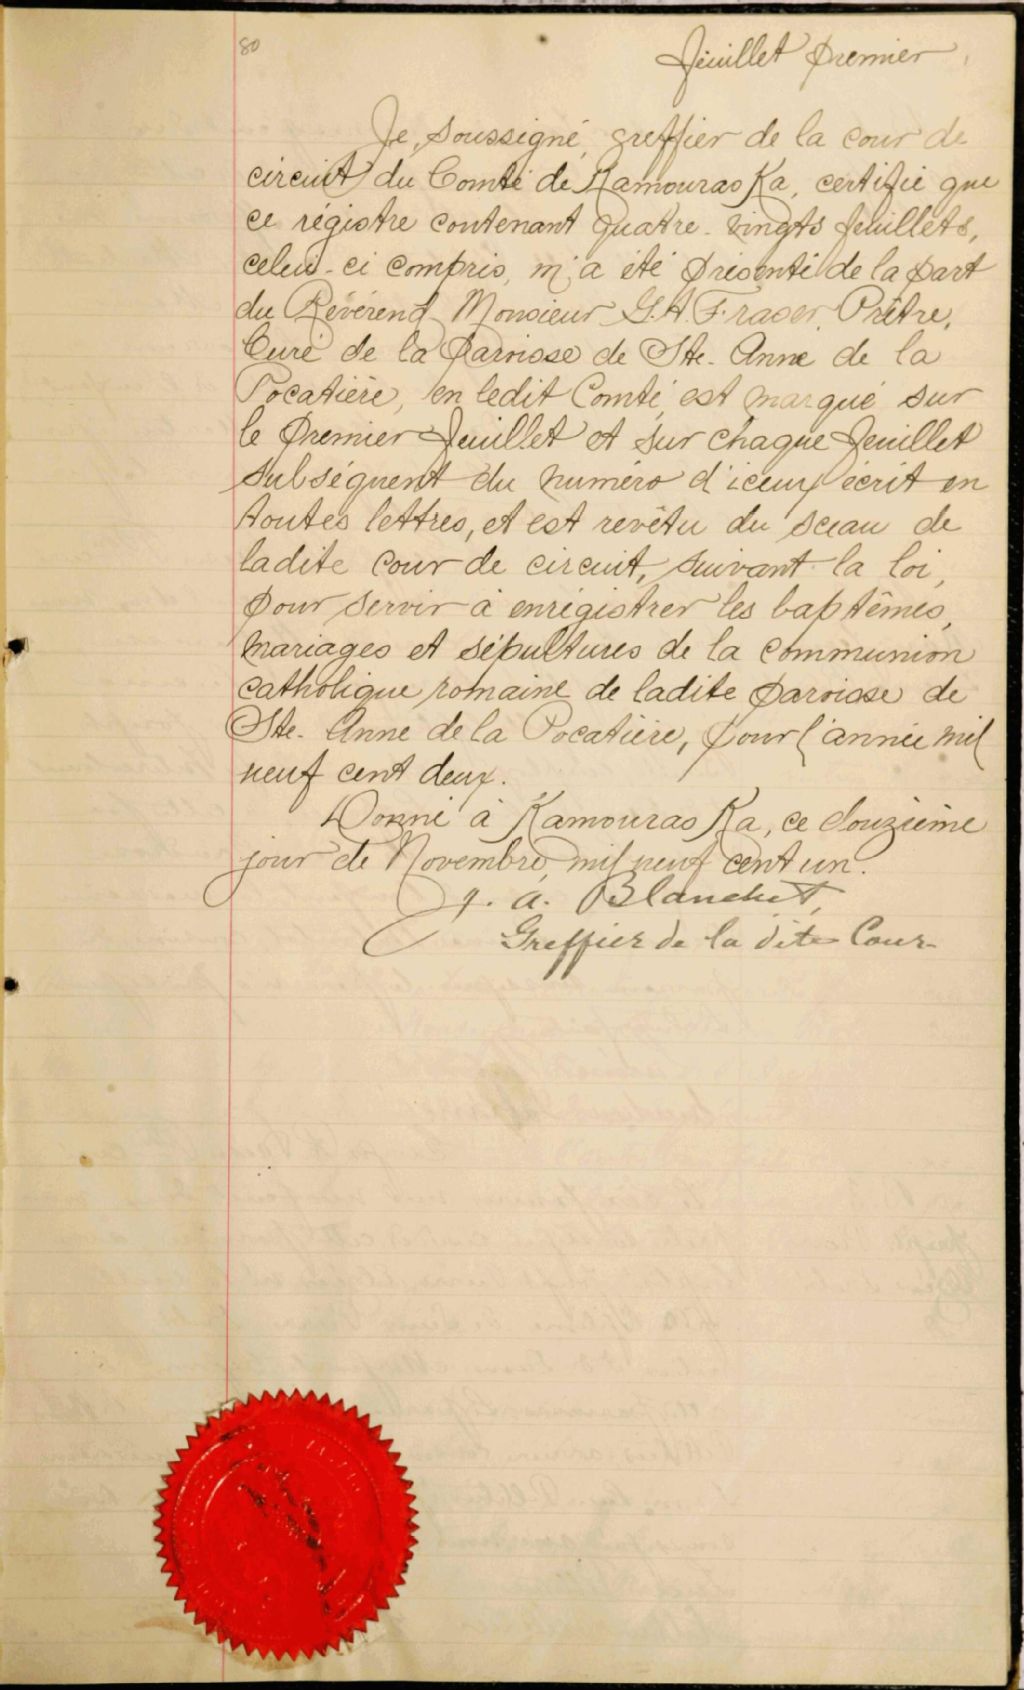 80
Feuillet Premier
Je, soussigné, greffier de la cour de
circuit du Comté de Kamouraska, certifie que
ce régistre contenant quatre-vingts feuillets,
celui-ci compris, m'a été présenté de la part
du Révérend Monsieur G.H. Fraser, Prêtre,
Curé de la Paroisse de Ste. Anne de la
Pocatière, en ledit Comté, est marqué sur
le premier feuillet et sur chaque feuillet
subséquent du numéro d'iceux écrit en
toutes lettres, et est revêtu du sceau de
ladite cour de circuit, suivant la loi,
pour servir à enrégistrer les baptêmes,
mariages et sépultures de la communion
catholique romaine de ladite paroisse de
Ste. Anne de la Pocatière, pour l'année mil
neuf cent deux.
Donné à Kamouraska, ce douzième
jour de Novembre, mil neuf cent un.
J. A. Blanchet,
Greffier de la dite Cour